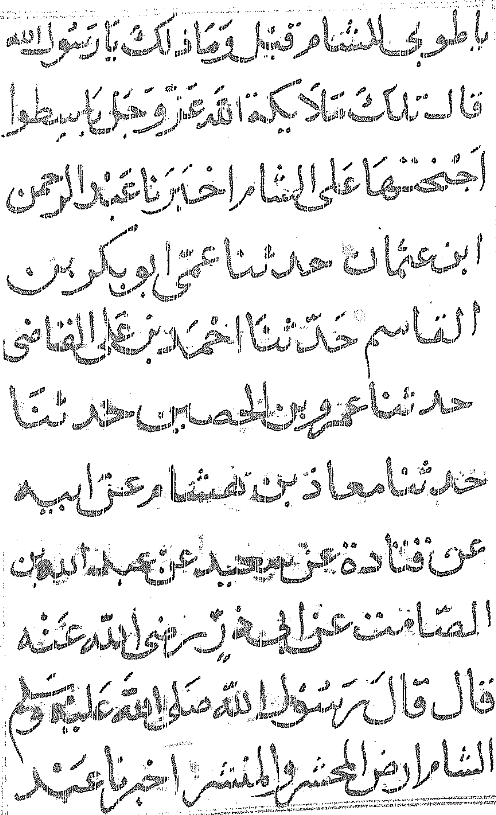 ياطوبى للشام قيل وَمَا ذلك يَا رَسُول الله
قال تلكَ مَلَايكة اللهِ عَزَّ وَجَل بَاسِطوا
اَجْنحَتهَا عَلى الشام اخبَرَنا عَبْد الرحمن
ابن عثمان حدثنا عمّى ابو بكر بن
القاسم حَدّثنَا احْمَد بن عَلى القاضى
حدثنا عمرو بن الحصين حدثنَا
حدثنا معاذ بن هشام عن ابيه
عن قتادة عن سعيد عن عبد الله بن
الصَّامت عن ابى ذرٍّ رضى الله عَنْه
قال قالَ رَسُول الله صَلى الله عَليه وَسَلم
الشام ارض المحشر والمنشر اخبرنا عبْد